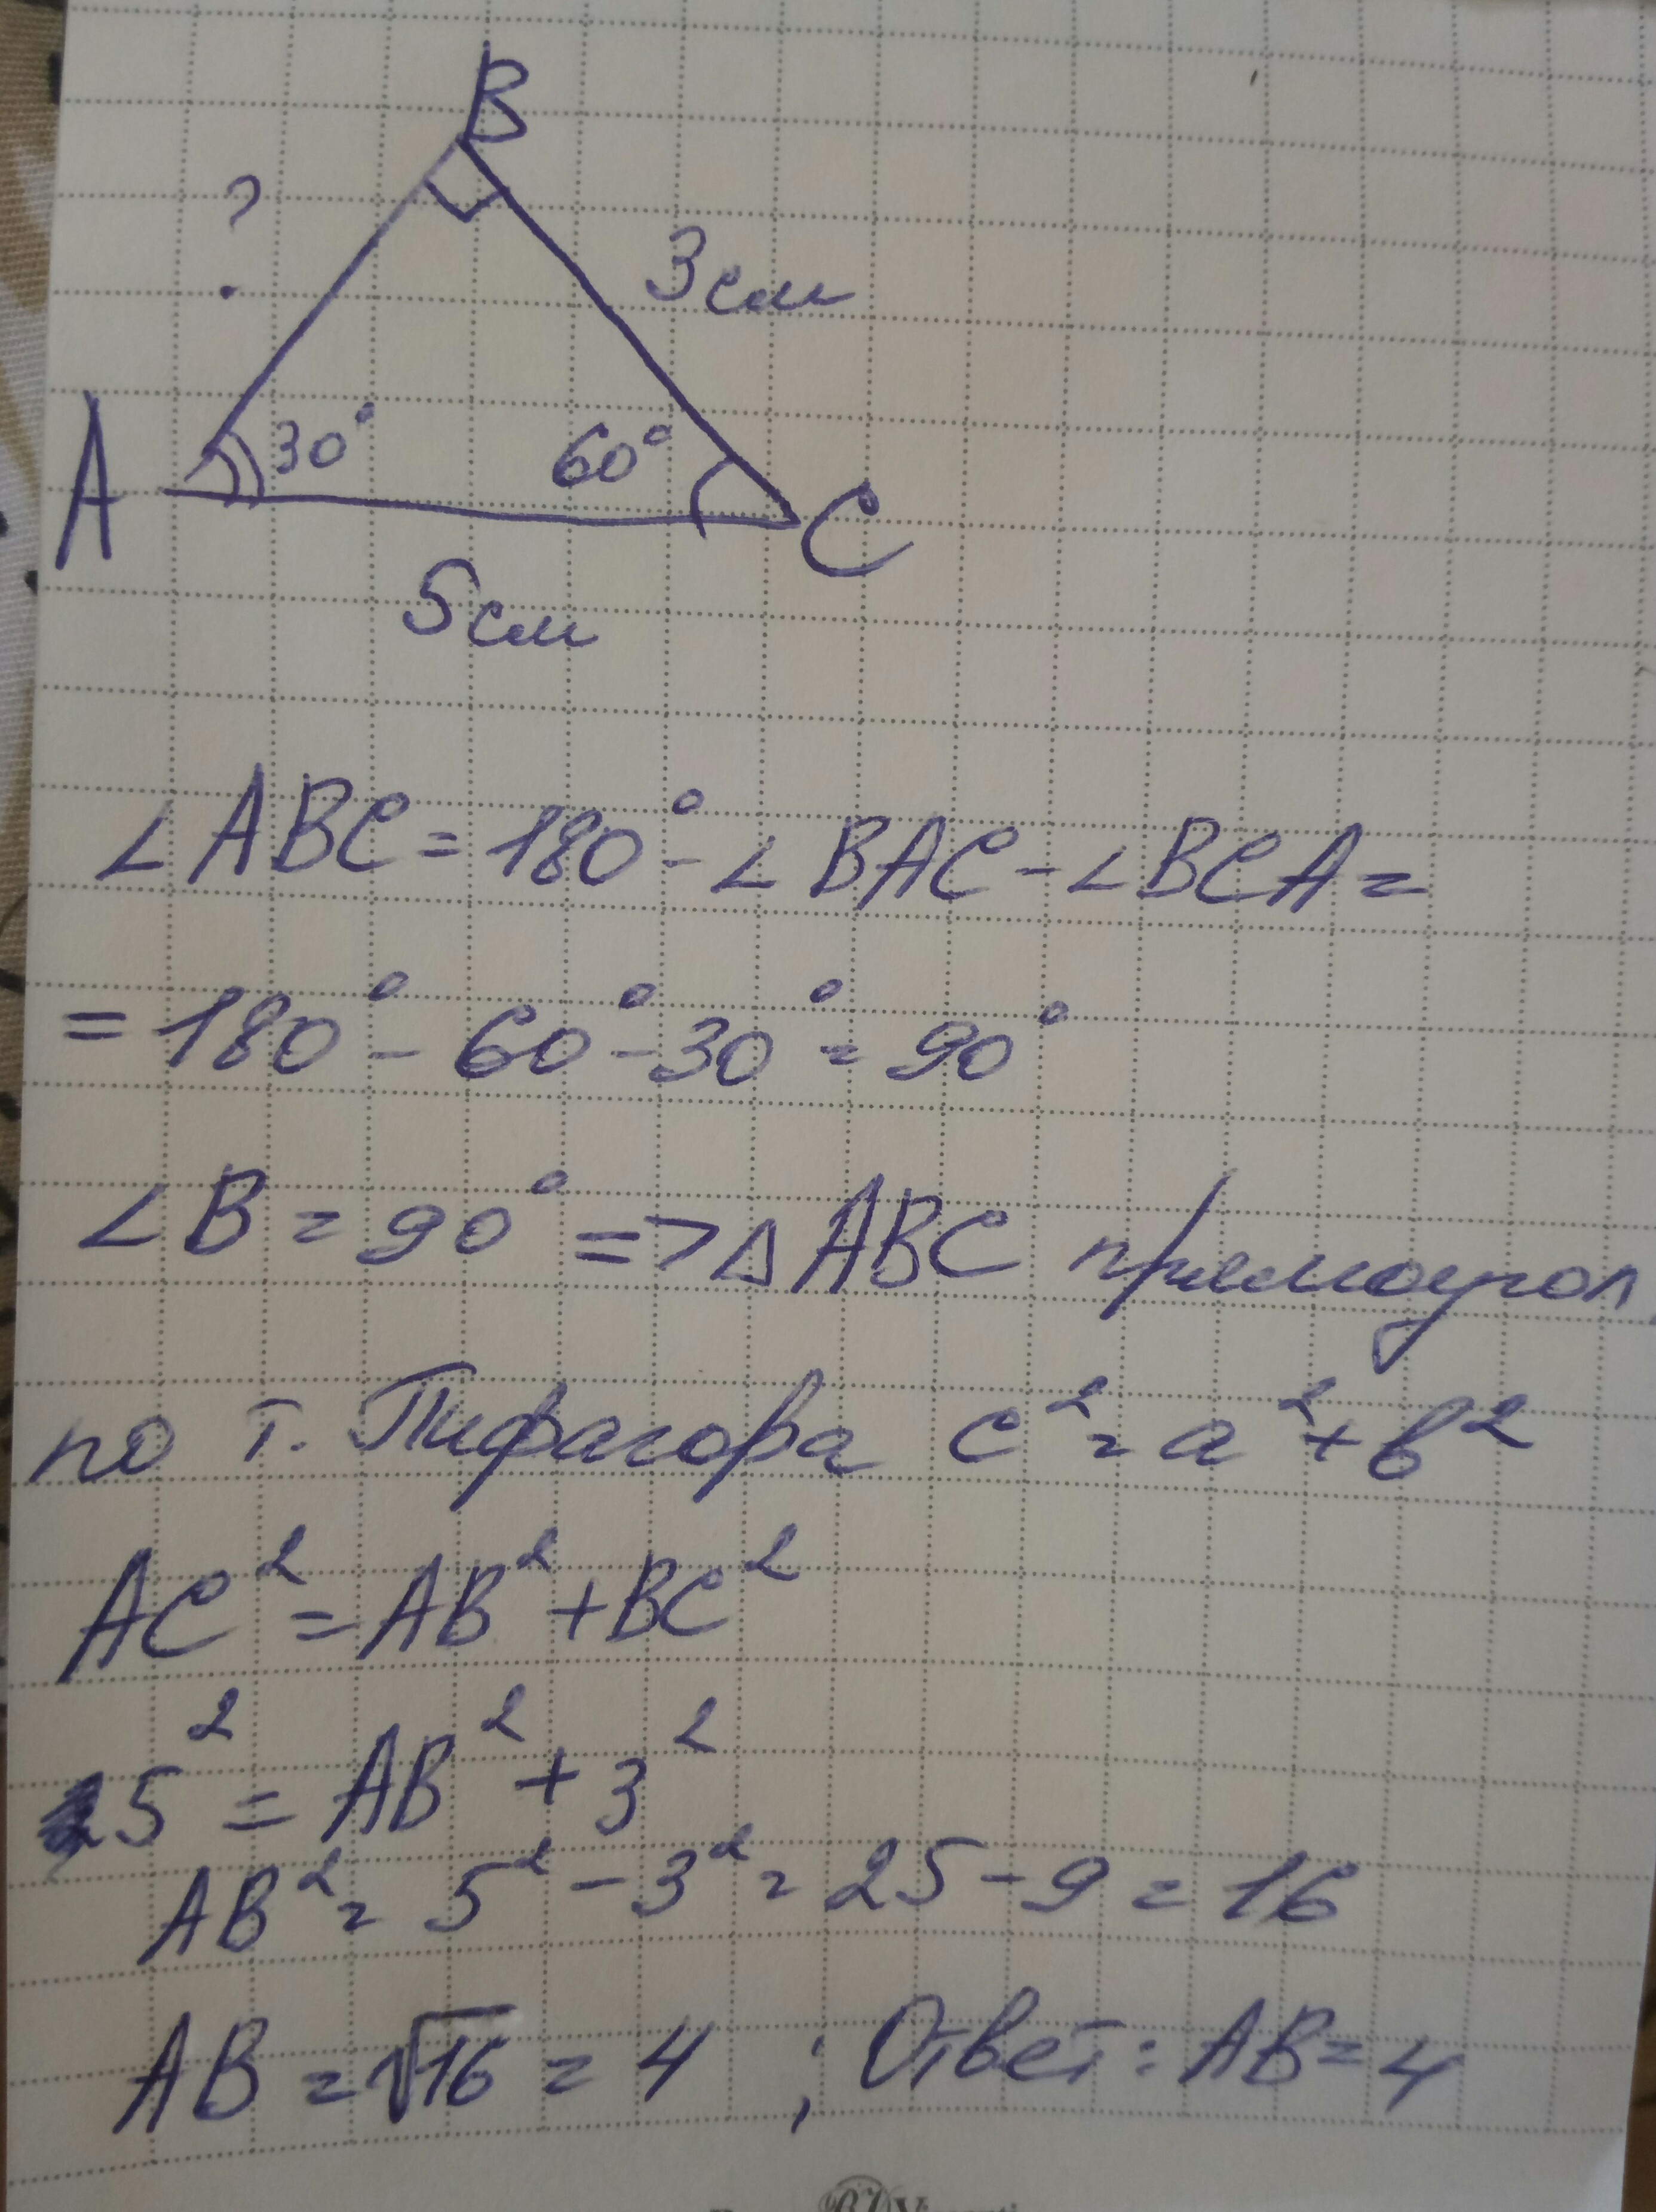 B
?
3см
A
30°
60°
C
5см
∠ABC = 180° - ∠BAC - ∠BCA =
= 180° - 60° - 30° = 90°
∠B = 90° => △ABC прямоугол
по т. Пифагора c² = a² + b²
AC² = AB² + BC²
5² = AB² + 3²
AB² = 5² - 3² = 25 - 9 = 16
AB = √16 = 4 ; Ответ: AB = 4